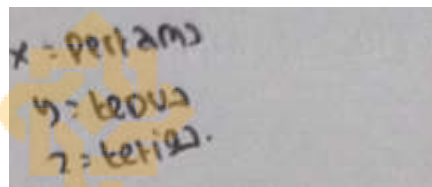 x = pertama
y = kedua
z = ketiga.